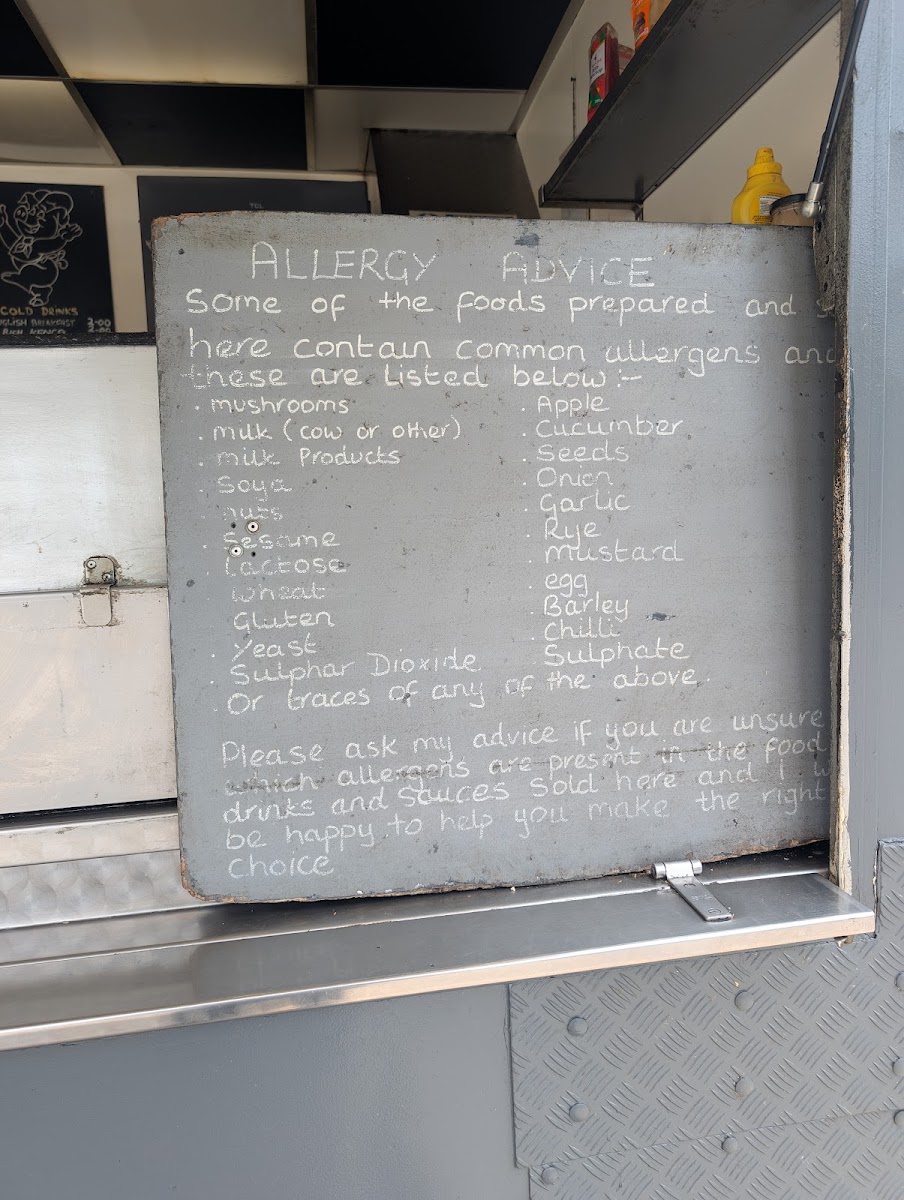 COLD DRINKS
ENGLISH BREAKFAST 2·00
ALLERGY ADVICE
Some of the foods prepared and
here contain common allergens and
these are listed below:-
. mushrooms
. milk (cow or other)
. milk Products
. Soya
. nuts
. Sesame
. Lactose
Wheat
Gluten
. Yeast
. Sulphar Dioxide
. Or traces of any of the above.
. Apple
. Cucumber
. Seeds
. Onion
. Garlic
. Rye
. Mustard
. egg
. Barley
. Chilli
. Sulphate
Please ask my advice if you are unsure
which allergens are present in the food
drinks and sauces Sold here and I w
be happy to help you make the right
choice